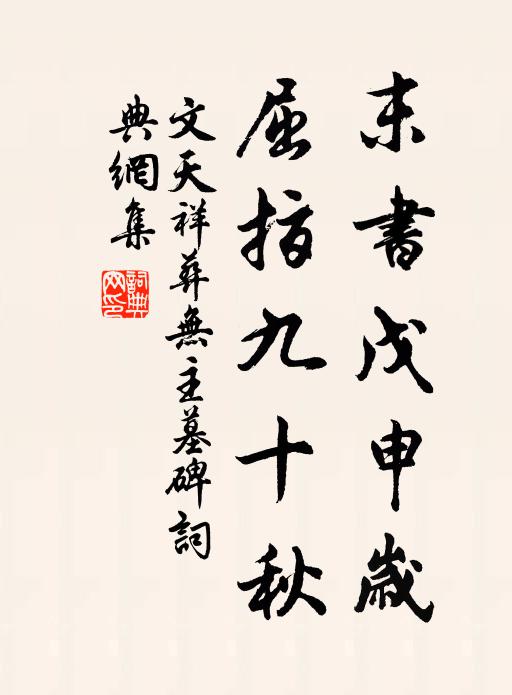 末書戊申歲
屈指九十秋
文天祥葬無主墓碑詞
典網集
詞典網印